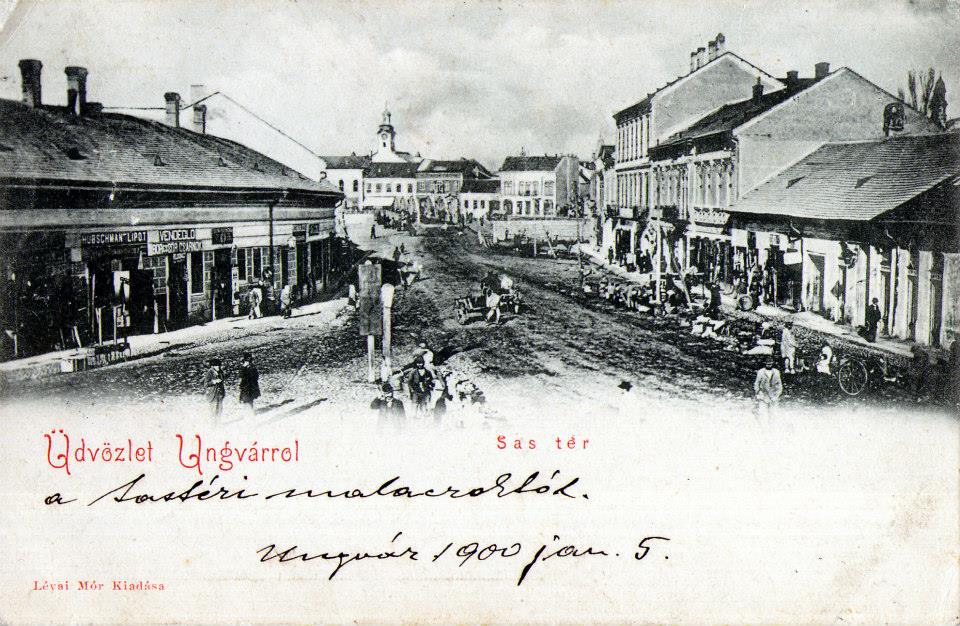 HUBSCHMAN LIPÓT
VENDÉGLŐ
BOR ÉS SÖR CSARNOK
Üdvözlet Ungvárrol
Sas tér
a sastéri malacroktól.
Ungvár 1900 jan. 5.
Lévai Mór Kiadása